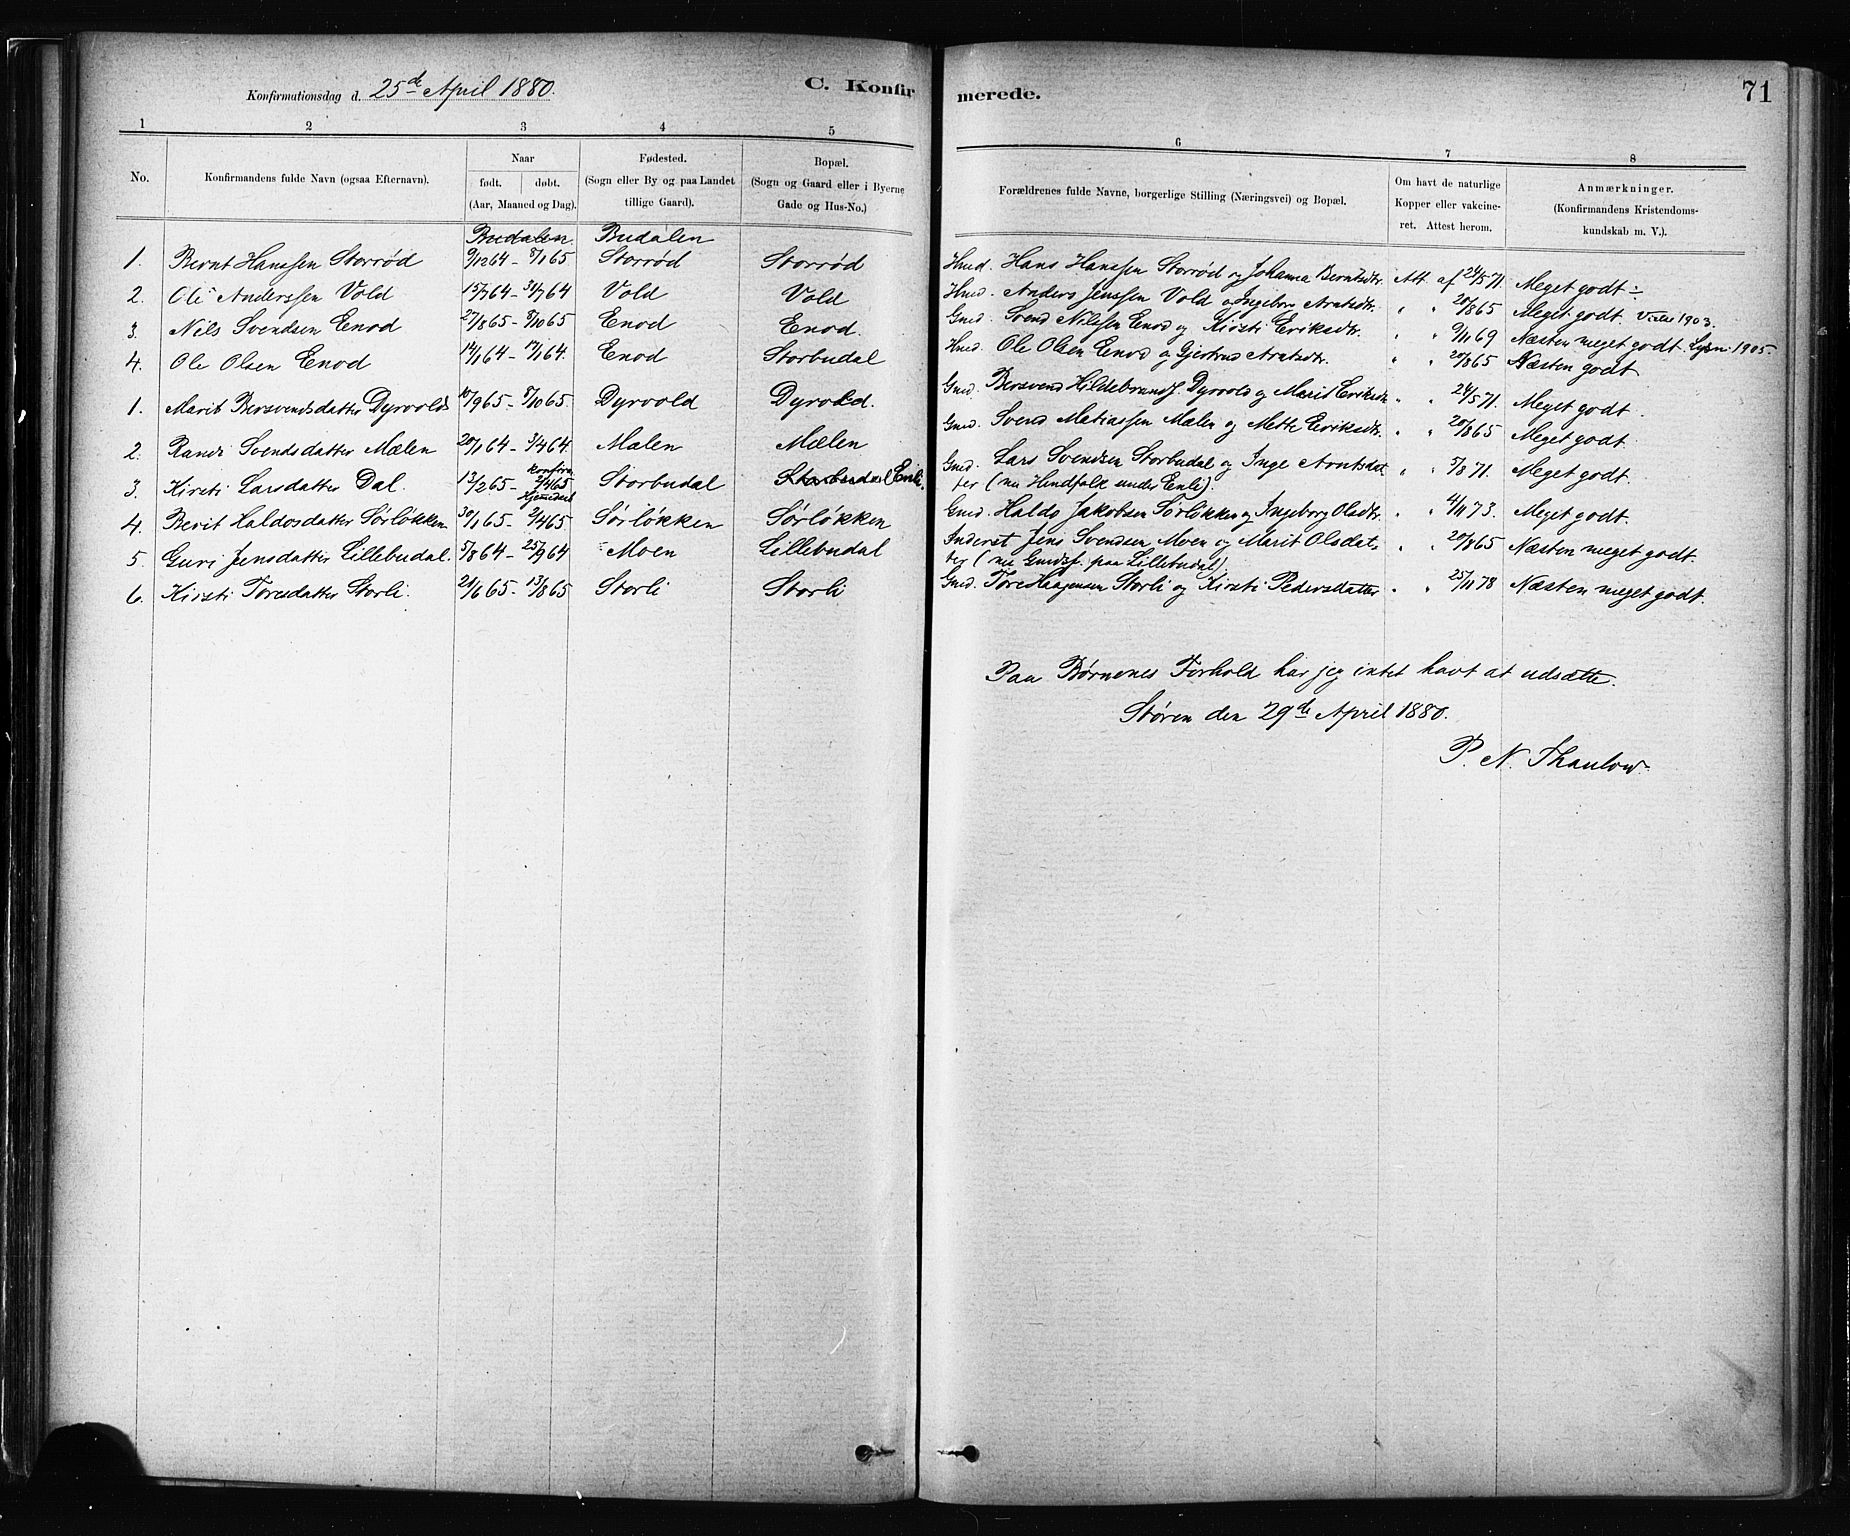 Konfirmationsdag d. 25de April 1880.
C. Konfirmerede.
71
1 2 3 4 5 6 7 8
No. Konfirmandens fulde Navn (ogsaa Efternavn). Naar født. døbt. (Aar, Maaned og Dag). Fødested. (Sogn eller By og paa Landet tillige Gaard). Bopæl. (Sogn og Gaard eller i Byerne Gade og Hus-No.) Forældrenes fulde Navne, borgerlige Stilling (Næringsvei) og Bopæl. Om havt de naturlige Kopper eller vakcineret. Attest herom. Anmærkninger. (Konfirmandens Kristendomskundskab m. V.).
Budalen Budalen
1. Bernt Hanssen Storrød 9/12 64 - 8/1 65 Storrød Storrød Hmd. Hans Hanssen Storrød og Johanna Berntsdtr. Att. af 24/5 71. Meget godt ÷
2. Ole Anderssen Vold 15/7 64 - 31/7 64 Vold Vold Hmd. Anders Jenssen Vold og Ingebor Arntsdtr. " " 20/8 65 Meget godt. 1903.
3. Nils Svendsen Enod 27/8 65 - 8/10 65 Enod Enod. Gmd. Svend Nilssen Enod og Kirsti Eriksdtr. " " 9/11 69 Næsten meget godt. 1905.
4. Ole Olsen Enod 14/1 64 - 17/1 64. Enod Storbudal Hmd. Ole Olsen Enod og Gjertrud Arntsdtr. " " 20/8 65 Næsten godt
1. Marit Bersvendsdatter Dyrvold 10/9 65 - 8/10 65. Dyrvold Dyrvold. Gmd. Bersvend Hildebrands. Dyrvold og Marit Eriksdtr " " 24/5 71. Meget godt.
2. Randi Svendsdatter Mælen 20/1 64 - 3/4 64. Mælen Mælen Gmd. Svend Matiassen Mælen og Mette Eriksdtr. " " 20/8 65 Meget godt.
3. Kirsti Larsdatter Dal. 12/2 65 - konfirm. 2/4 65 hjemdøbt Storbudal Storbudal Enli. Gmd. Lars Svendsen Storbudal og Inge Arntsdat " " 5/8 71. Meget godt.
ter (nu Hmdfolk under Enli).
4. Berit Haldosdatter Sørløkken 30/1 65 - 2/4 65 Sørløkken Sørløkken Gmd. Haldo Jakobsen Sørløkken og Ingeborg Olsdtr. " " 4/11 73. Meget godt.
5. Guri Jensdatter Lillebudal. 5/8 64 - 25/9 64 Moen Lillebudal Inderst Jens Svendsen Moen og Marit Olsdat " " 20/8 65 Næsten meget godt.
ter (nu Gmdsf. paa Lillebudal)
6. Kirsti Toresdatter Storli. 21/6 65 - 13/8 65 Storli Storli Gmd. Tore Haagensen Storli og Kirsti Pedersdatter " " 25/11 78 Næsten meget godt.
Paa Børnenes Forhold har jeg intet havt at udsætte.
Støren den 29de April 1880.
P. N. Thaulow.